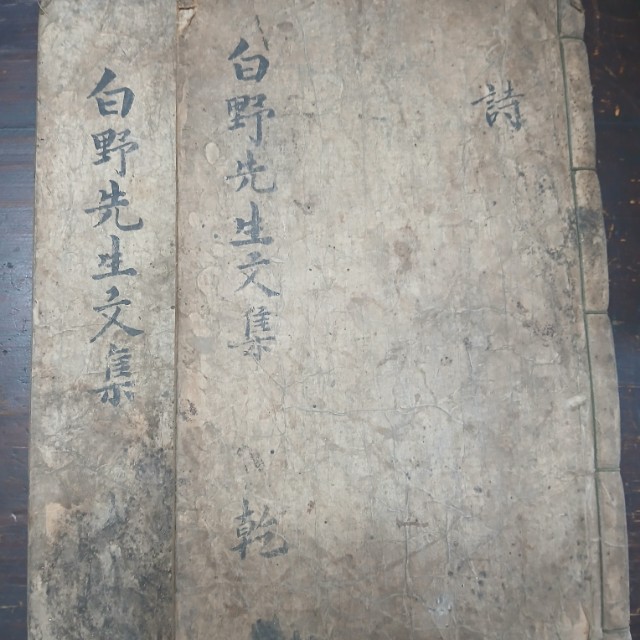 詩
白野先生文集 乾
白野先生文集